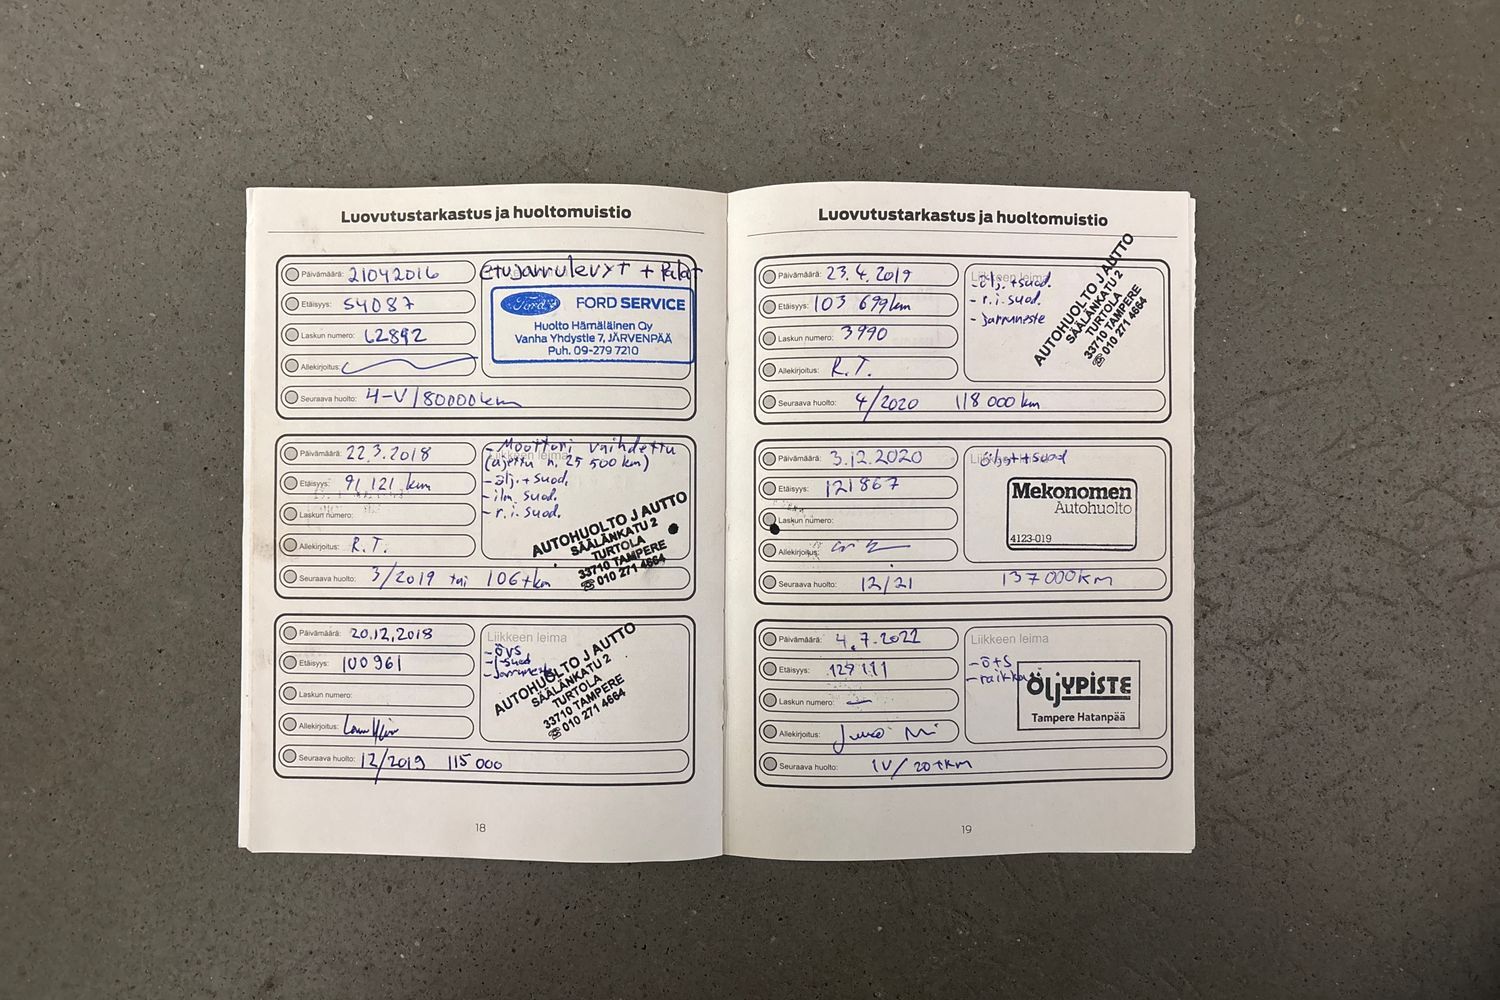 Luovutustarkastus ja huoltomuistio
Päivämäärä: 21042016
Etäisyys: 54087
Laskun numero: 62892
Allekirjoitus:
Seuraava huolto: 4-V/80000km
etujarrulevyt + palat
Ford
FORD SERVICE
Huolto Hämäläinen Oy
Vanha Yhdystie 7, JÄRVENPÄÄ
Puh. 09-279 7210
Päivämäärä: 22.3.2018
Etäisyys: 91 121 km
Laskun numero:
Allekirjoitus: R.T.
Seuraava huolto: 3/2019 tai 106tkm
Liikkeen leima
- Moottori vaihdettu
(ajettu n. 25 500 km)
-ölj. + suod.
- ilm. suod.
- r.i. suod.
AUTOHUOLTO J AUTTO
SÄÄLÄNKATU 2
TURTOLA
33710 TAMPERE
☏ 010 271 4664
Päivämäärä: 20.12.2018
Etäisyys: 100 961
Laskun numero:
Allekirjoitus:
Seuraava huolto: 12/2019 115 000
Liikkeen leima
- övs
- i-suod
- Jarruneste
AUTOHUOLTO J AUTTO
SÄÄLÄNKATU 2
TURTOLA
33710 TAMPERE
☏ 010 271 4664
18
Luovutustarkastus ja huoltomuistio
Päivämäärä: 23.4.2019
Etäisyys: 103 699km
Laskun numero: 3990
Allekirjoitus: R.T.
Seuraava huolto: 4/2020 118 000 km
Liikkeen leima
- ölj. + suod.
- r.i. suod.
- jarruneste
AUTOHUOLTO J AUTTO
SÄÄLÄNKATU 2
TURTOLA
33710 TAMPERE
☏ 010 271 4664
Päivämäärä: 3.12.2020
Etäisyys: 121867
Laskun numero:
Allekirjoitus:
Seuraava huolto: 12/21 137 000 km
Liikkeen leima
öljyt+suod
Mekonomen
Autohuolto
4123-019
Päivämäärä: 4.7.2022
Etäisyys: 129 111
Laskun numero: —
Allekirjoitus:
Seuraava huolto: 1V/20tkm
Liikkeen leima
- ö+s
- raikka
ÖLJYPISTE
Tampere Hatanpää
19